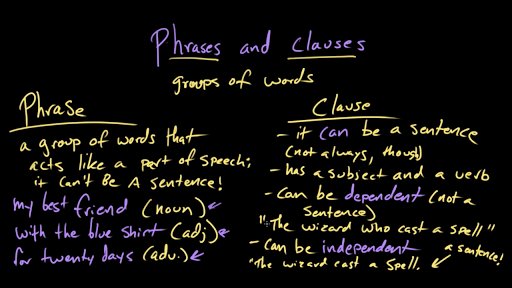 Phrases and clauses
groups of words
Phrase
a group of words that
acts like a part of speech;
it can't BE A sentence!
my best friend (noun)
with the blue shirt (adj)
for twenty days (adv.)
Clause
- it can be a sentence
(not always, though)
- has a subject and a verb
- can be dependent (not a
sentence)
"The wizard who cast a spell"
- can be independent
a sentence!
"The wizard cast a spell.